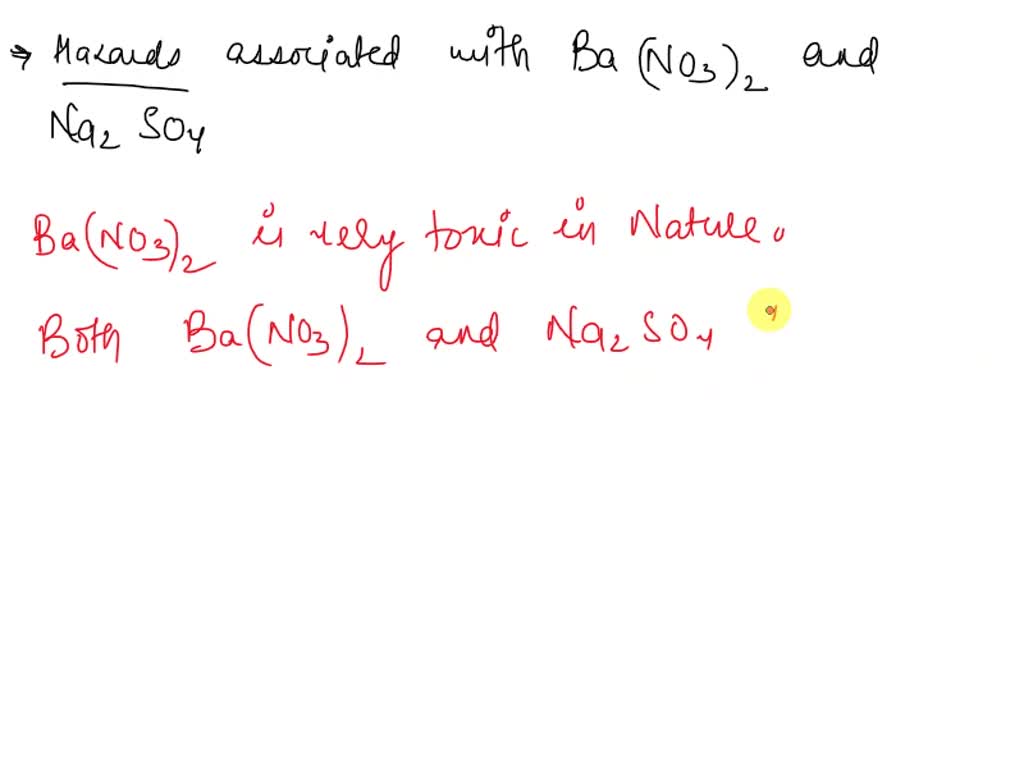 ⇒ Hazards associated with Ba(NO3)2 and
Na2SO4
Ba(NO3)2 is very toxic in Nature.
Both Ba(NO3)2 and Na2SO4